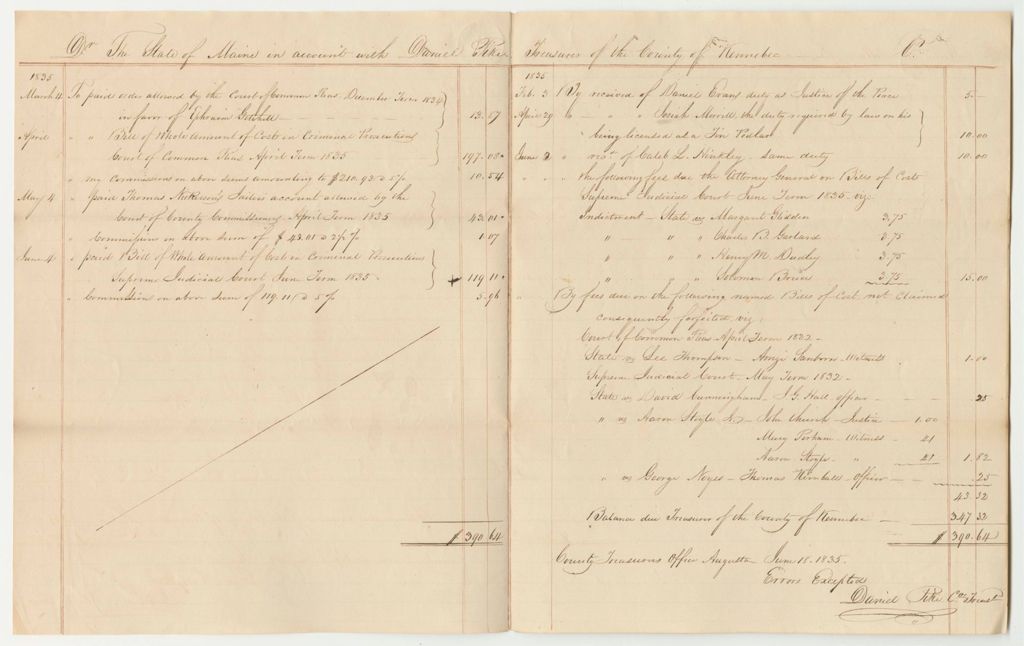 Dr The State of Maine in account with Daniel Pike
1835
March 4 To paid order allowed by the Court of Common Pleas, December Term 1834
in favor of Ephraim Getchell 13.87
April " " Bill of Whole amount of Cost in Criminal Prosecutions
Court of Common Pleas April Term 1835 197.08
" my Commissions on above sums amounting to $210.95 @ 5 pr 10.54
May 4 " paid Thomas Nickerson's Jailers account allowed by the
Court of County Commissioners April Term 1835 43.01
" Commissions on above Sum of $43.01 @ 2½ pr 1.07
June 4 " paid Bill of Whole amount of Cost in Criminal Prosecutions
Supreme Judicial Court June Term 1835 119.11
" Commission on above Sum of 119.11 @ 5 pr 5.96
$390.64
Treasurer of the County of Kennebec Cr
1835
Feb. 3 By received of Daniel Evans duty as Justice of the Peace 5.-
April 29 " " " Josiah Morrill, the duty required by law on his
being licensed as a Tin Pedlar 10.00
June 2 " rec'd of Caleb L. Hinkley, same duty 10.00
" " the following fees due the Attorney General on Bills of Cost
Supreme Judicial Court June Term 1835. viz;
Indictment - State vs Margaret Glidden 3.75
" - " " Charles B. Garland 3.75
" " " Henry M. Dudley 3.75
" " " Solomon Bower 3.75 15.00
By fees due on the following named Bills of Cost not Claimed
consequently forfeited, viz;
Court of Common Pleas April Term 1832 -
State vs Lee Thompson - Amzi Sanborn - Witness 1.00
Supreme Judicial Court - May Term 1832 -
State vs David Cunningham - J. G. Hall officer - .25
" vs Aaron Stoyle - John Church - Justice - 1.00
Mary Perham - Witness - 41
Aaron Stoyle - " 41 1.82
" vs George Noyes - Thomas Kimball - officer - .25
43 32
Balance due Treasurer of the County of Kennebec - 347 32
$390.64
County Treasurers Office Augusta June 18. 1835.
Errors Excepted
Daniel Pike Co. Treasr